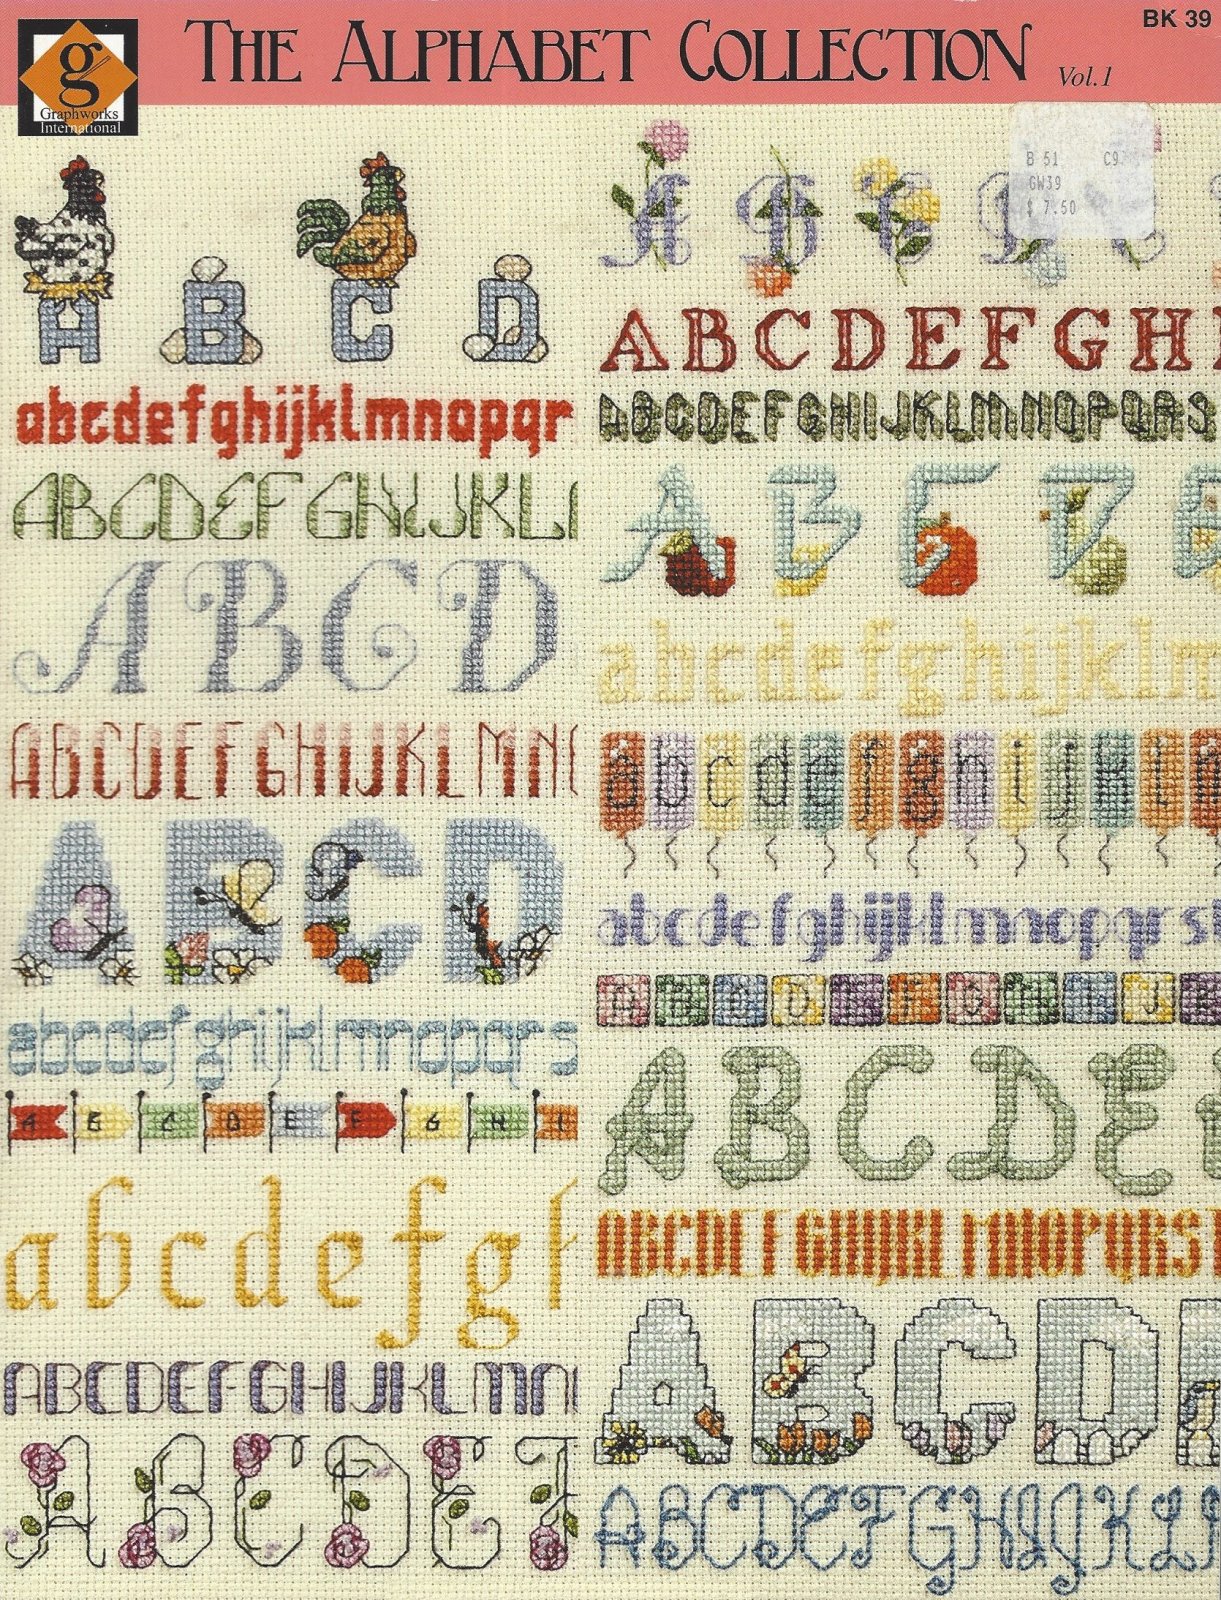 BK 39
g
Graphworks
International
THE ALPHABET COLLECTION Vol.1
B 51
GW39
$ 7.50
A B C D
abcdefghijklmnopqr
ABCDEFGHIJKL
ABCD
ABCDEFGHIJKLMN
ABCD
abcdefghijklmnopqrs
A B C D E F G H I
abcdefg
ABCDEFGHIJKLMN
ABCDE
A B C D
ABCDEFGH
ABCDEFGHIJKLMNOPQRS
A B C D
abcdefghijkl
abcdefghijklm
abcdefghijklmnopqrs
A B C D E F G H I J K
ABCDE
ABCDEFGHIJKLMNOPQRS
ABCD
ABCDEFGHIJKL